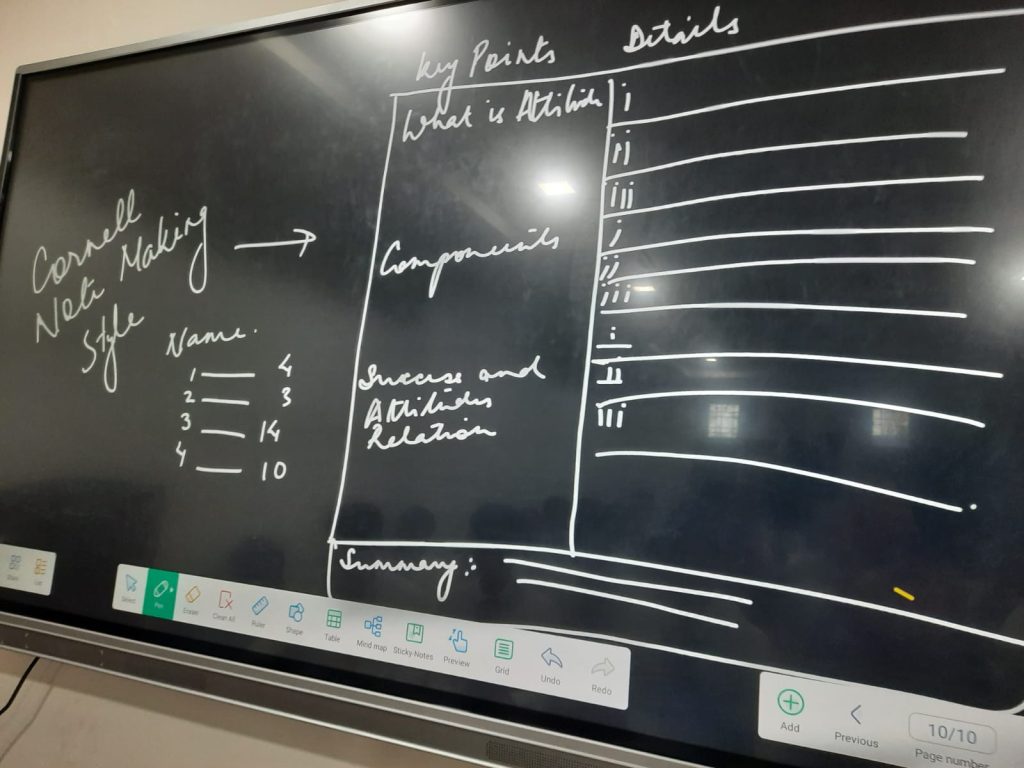 Key Points Details
What is Attitude i
ii
iii
Components i
ii
iii
Success and i
Attitudes ii
Relation iii
Summary:
Cornell
Note Making
Style
Name.
1 — 4
2 — 3
3 — 14
4 — 10
Share List
Select Pen Eraser Clean All Ruler Shape Table Mind map Sticky-Notes Preview Grid Undo Redo
Add Previous 10/10
Page number